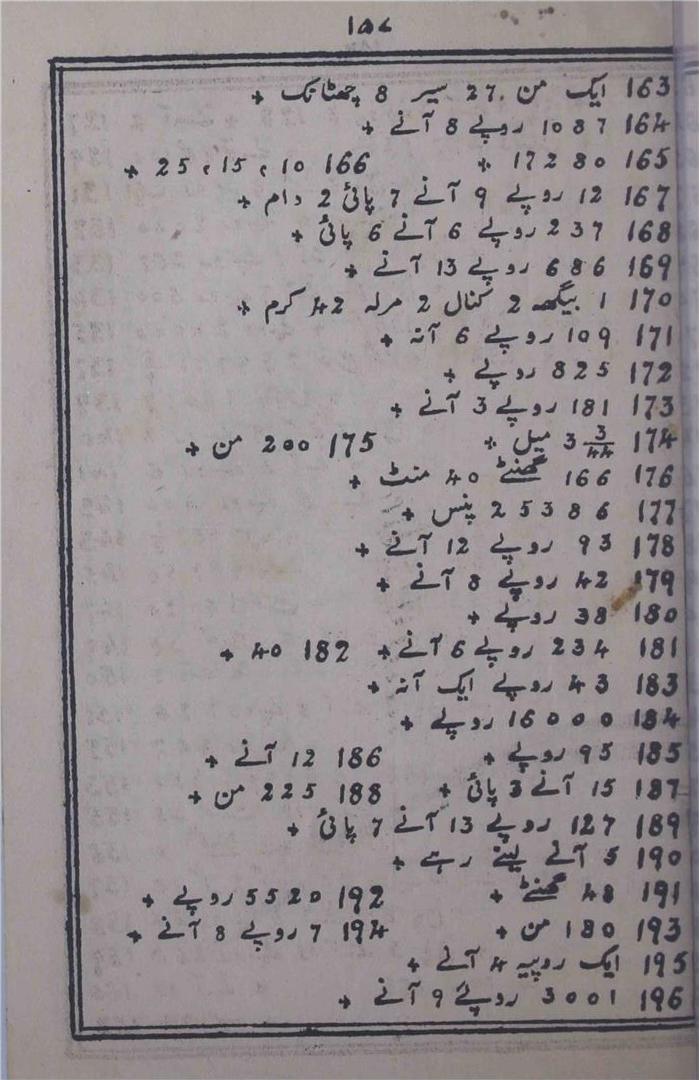 ۱۵۷
163 ایک من 27 سیر 8 چھٹانک +
164 1087 روپے 8 آنے +
165 17280 + 166 10 ، 15 ، 25 +
167 12 روپے 9 آنے 7 پائی 2 دام +
168 237 روپے 6 آنے 6 پائی +
169 686 روپے 13 آنے +
170 1 بیگھہ 2 کنال 2 مرلہ 42 کرم +
171 109 روپے 6 آنہ +
172 825 روپے +
173 181 روپے 3 آنے +
174 3 3/44 میل + 175 200 من +
176 166 گھنٹے 40 منٹ +
177 25386 پنس +
178 93 روپے 12 آنے +
179 42 روپے 8 آنے +
180 38 روپے +
181 234 روپے 6 آنے + 182 40 +
183 43 روپے ایک آنہ +
184 16000 روپے +
185 95 روپے + 186 12 آنے +
187 15 آنے 3 پائی + 188 225 من +
189 127 روپے 13 آنے 7 پائی +
190 5 آنے لیتے رہے +
191 48 گھنٹے + 192 5520 روپے +
193 180 من + 194 7 روپے 8 آنے +
195 ایک روپیہ 4 آنے +
196 3001 روپے 9 آنے +